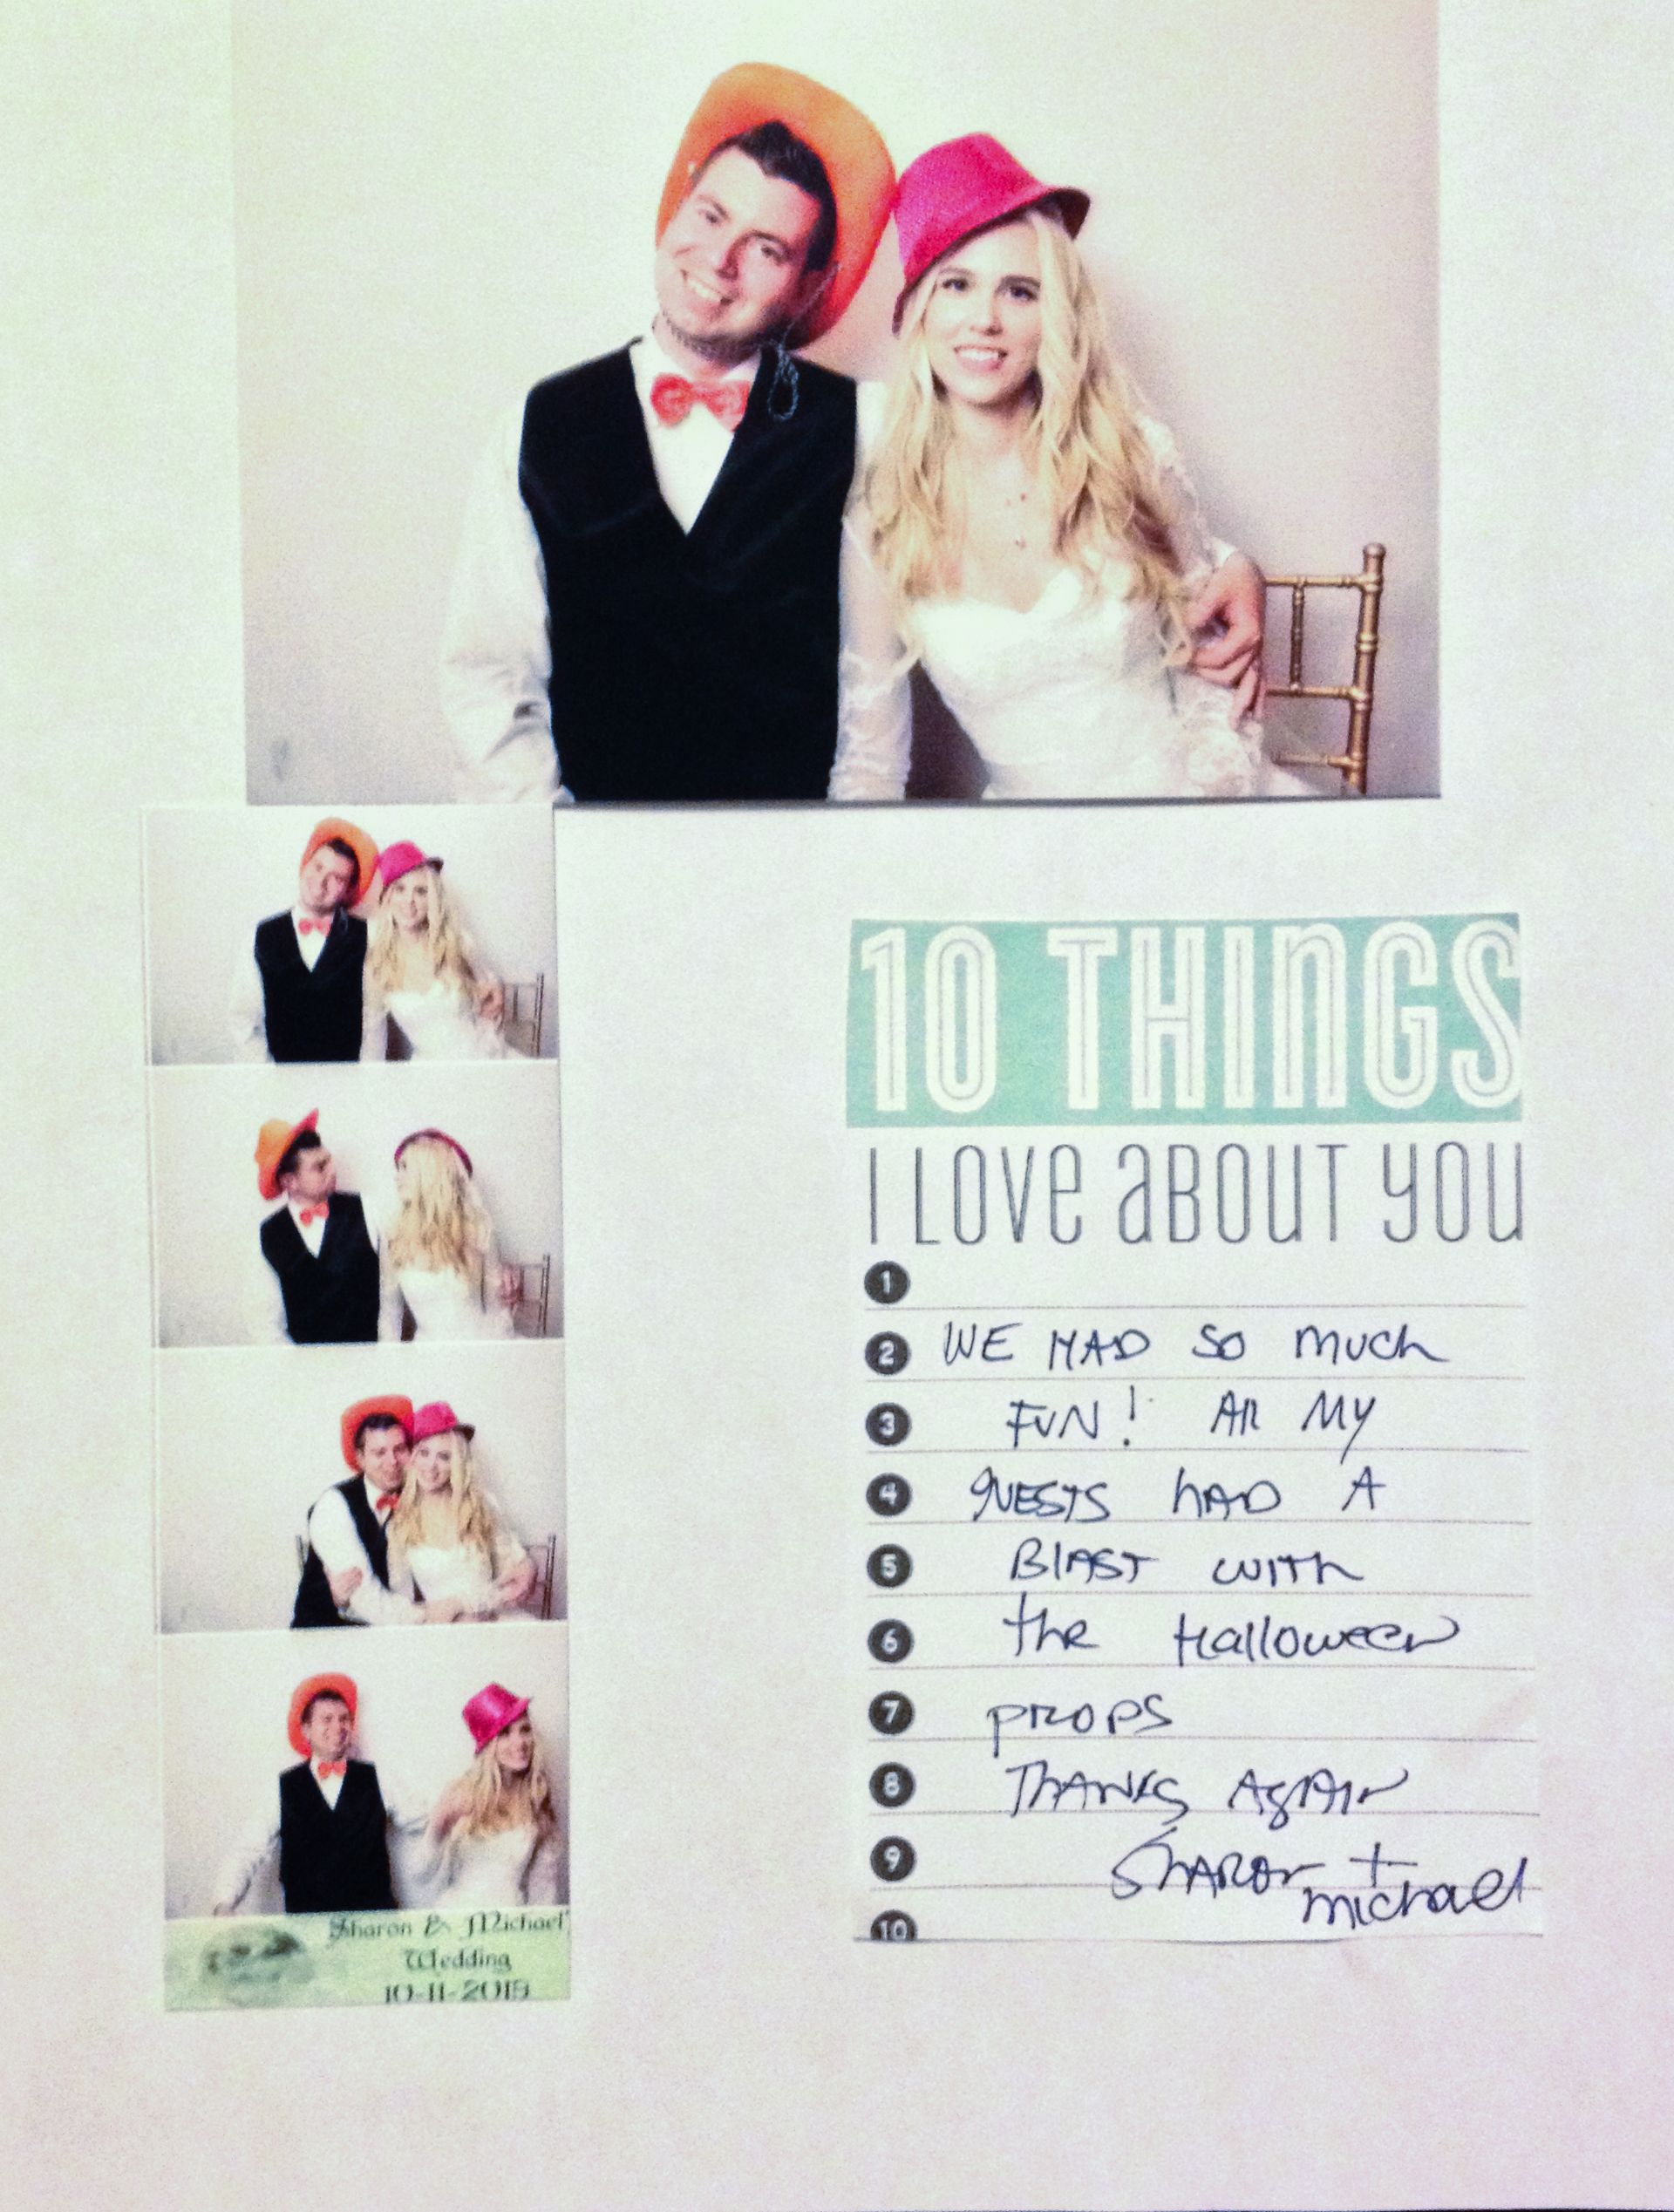 10 THINGS
I LOVE ABOUT YOU
1
2 WE HAD SO MUCH
3 FUN! All MY
4 gUESTS hAD A
5 BlAST WITH
6 the Halloween
7 PROPS
8 THANKS AgAIN
9 SHARON +
michael
10
Sharon & Michael
Wedding
10-11-2015